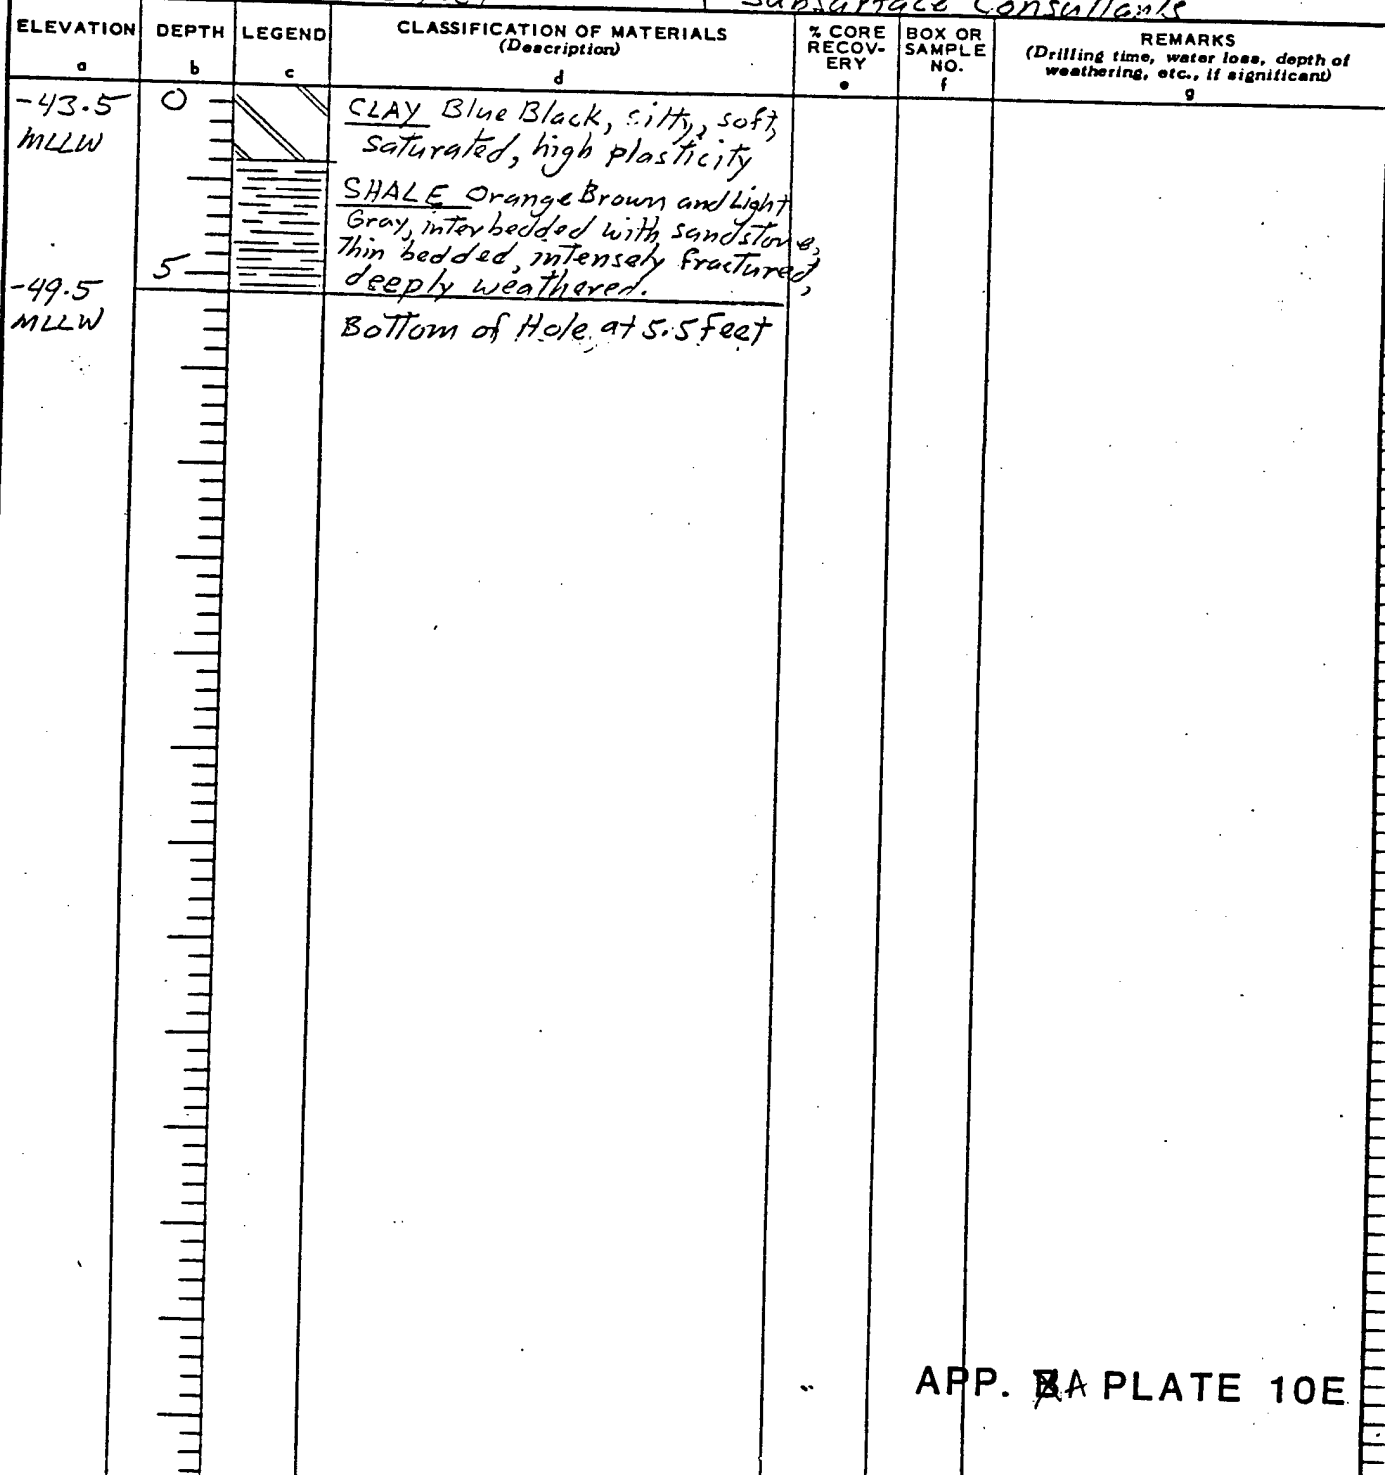 Subsurface Consultants
ELEVATION DEPTH LEGEND CLASSIFICATION OF MATERIALS % CORE BOX OR REMARKS
(Description) RECOV- SAMPLE (Drilling time, water loss, depth of
ERY NO. weathering, etc., if significant)
a b c d e f g
-43.5 0 CLAY Blue Black, silty, soft,
MLLW saturated, high plasticity
SHALE Orange Brown and Light
Gray, interbedded with sandstone,
Thin bedded, intensely fractured,
5 deeply weathered.
-49.5
MLLW Bottom of Hole at 5.5 feet
APP. A PLATE 10E